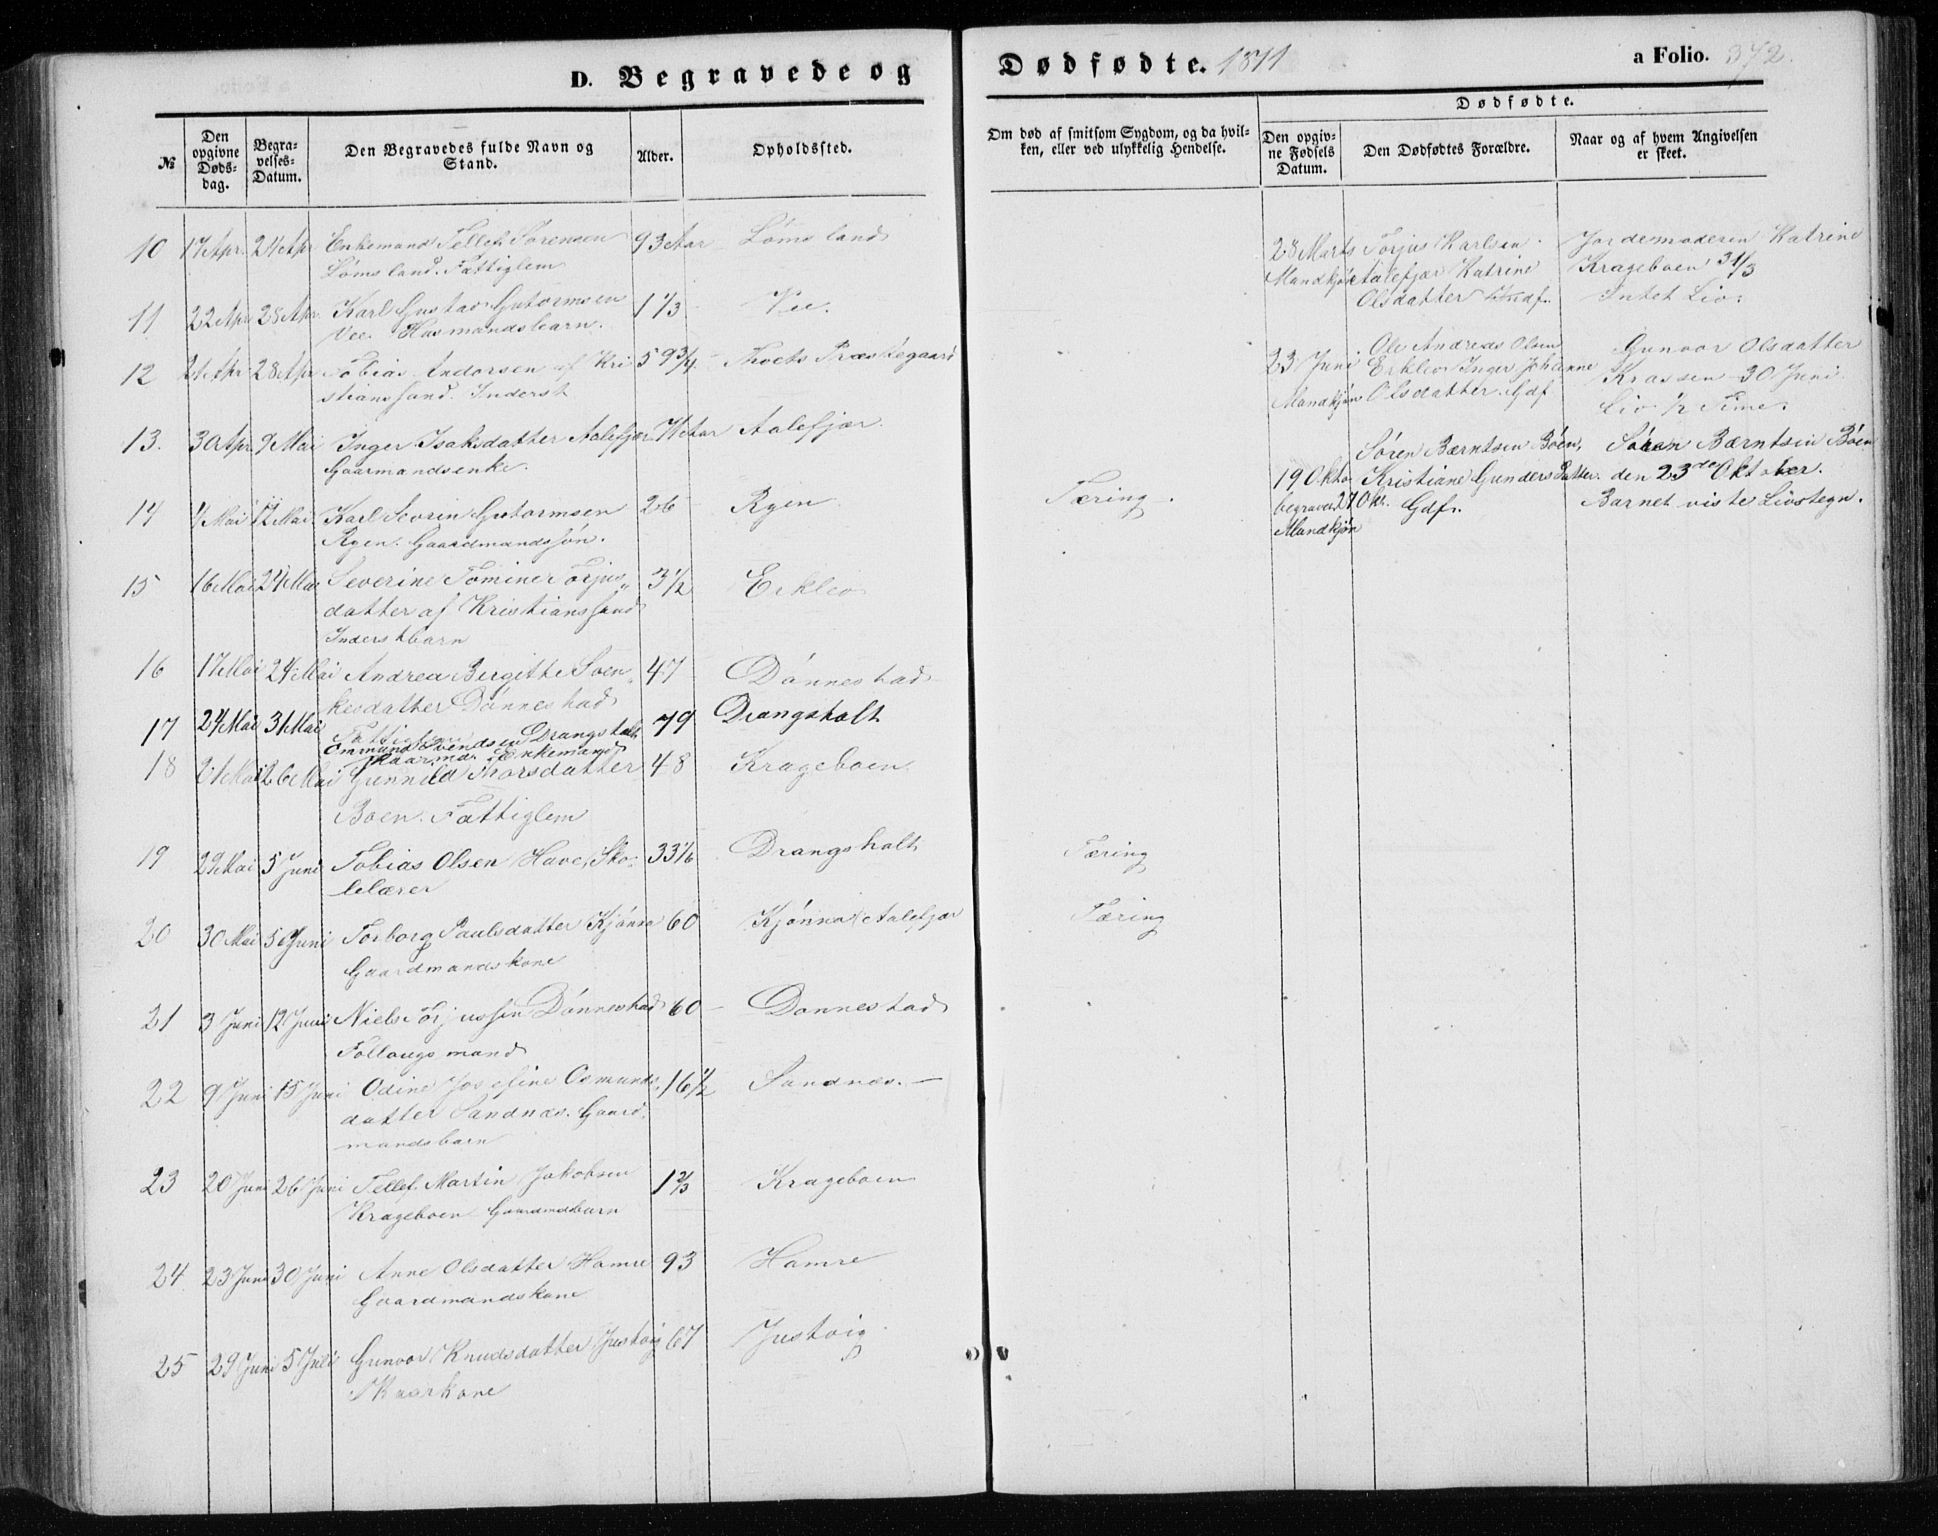 D. Begravede og Dødfødte. 1871 a Folio. 372.
№
Den opgivne Døds-dag.
Begra-velses-Datum.
Den Begravedes fulde Navn og Stand.
Alder.
Opholdssted.
Om død af smitsom Sygdom, og da hvil-
ken, eller ved ulykkelig Hendelse.
Dødfødte.
Den opgiv-ne Fødsels Datum.
Den Dødfødtes Forældre.
Naar og af hvem Angivelsen er skeet.
10 17 Apr. 24 Apr Enkemand Tellef Sørensen 93 Aar Lømsland
Lømsland. Fattiglem
11 22 Apr 28 Apr. Karl Gustav Gutormsen 1 1/3 Vee.
Vee. Husmandsbarn.
12 21 Apr 28 Apr Tobias Andersen af Kri 59 3/4 Tveets Præstegaard
stianssand. Inderst
13. 30 Apr. 9 Mai Inger Isaksdatter Aalefjær Aar Aalefjær
Gaarmandsenke.
14 4 Mai 12 Mai. Karl Severin Gutormsen 26 Ryen Tæring.
Ryen. Gaardmandssøn.
15 16 Mai 24 Mai Severine Tomine Torjus„ 3 1/2 Erklev
datter af Kristianssand
Inderstbarn
16 17 Mai 24 Mai Andrea Bergitte Soen„ 47 Dønnestad
kesdatter Dønnestad
Fattiglem
17 24 Mai 31 Mai Ommund Svendsen Drangsholt 79 Drangsholt
Gaarmd. Enkemand
18 21 Mai 26 Mai Gunnild Thorsdatter 48 Krageboen
Boen. Fattiglem
19 29 Mai 5 Juni Tobias Olsen Have, Sko- 33 1/6 Drangsholt Tæring
lelærer
20 30 Mai 5 Juni Torborg Paulsdatter Kjønna 60 Kjønna Aalefjær Tæring
Gaardmandskone
21 3 Juni 12 Juni Niels Torjussen Dønnestad 60 Donnestad
Follaugsmand
22 9 Juni 15 Juni Odine Josefine Osmunds„ 16 1/2 Sandnæs.
datter Sandnæs. Gaard„
mandsbarn
23 20 Juni 26 Juni Tellef Martin Jakobsen 1 2/3 Krageboen
Krageboen Gaardmdbarn
24 23 Juni 30 Juni Anne Olsdatter Hamre 93 Hamre
Gaardmandskone
25 29 Juni 5 Juli Gunvor Knudsdatter Justvig 67 Justvig
kone
28 Marts Torjus Karlsen Jordemoderen Katrine
Mandkjøn Aalefjær Katrine Krageboen 31/3
Olsdatter Intet Liv.
23 Juni Ole Andreas Olsen Gunvor Olsdatter
Erklev Inger Johanne Krossen 30 Juni.
Mandkjøn Olsdatter. Gdf Liv 1/2 Time.
19 Okto Søren Bærntsen Bøen, Søren Bærntsen Bøen
begravet 27 Okt. Kristiane Gundersdatter. den 23de Oktober.
Mandkjøn Gdf. Barnet viste Livstegn.